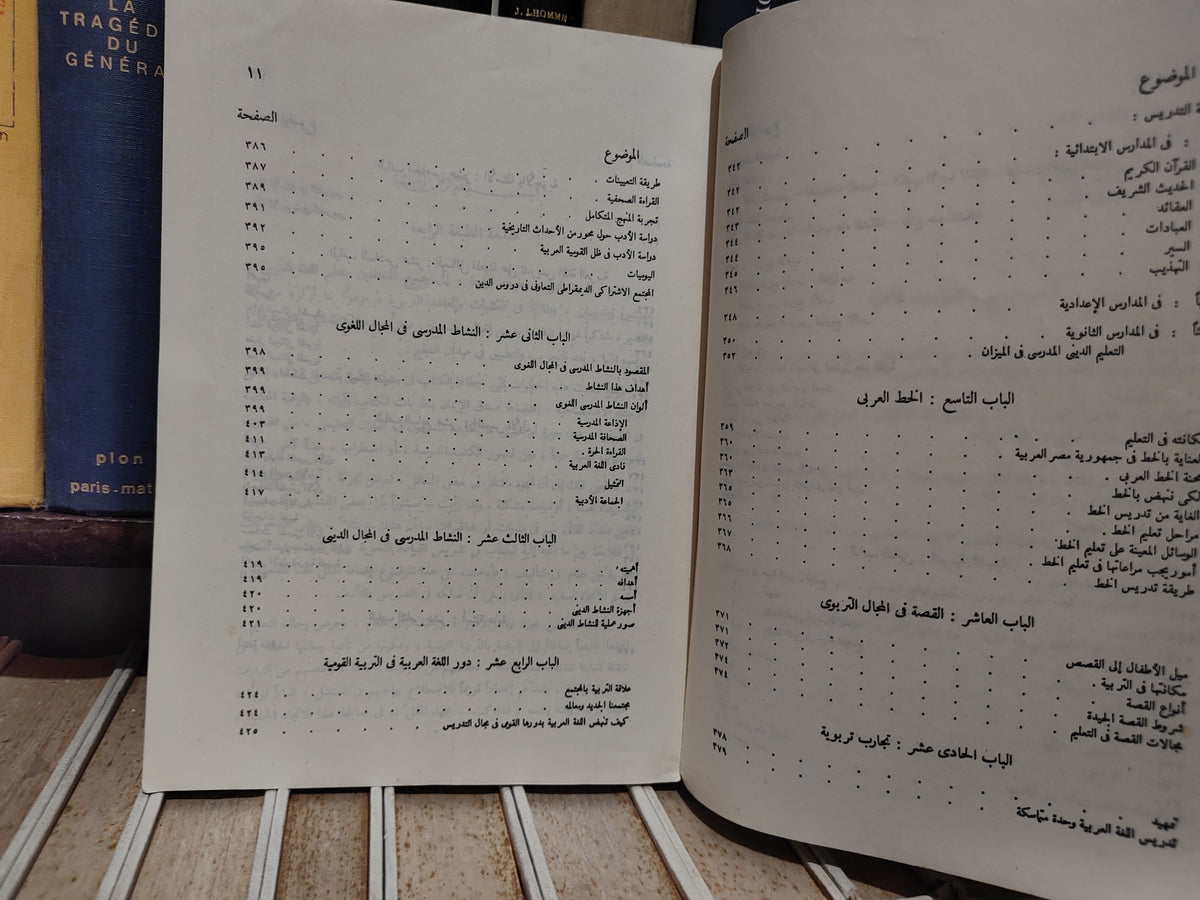 LA
TRAGÉD
DU
GÉNÉRA
plon
paris-mat
J. LHOMME
الموضوع
الصفحة
ة التدريس :
: فى المدارس الابتدائية :
القرآن الكريم ٣٤٢
الحديث الشريف ٣٤٢
العقائد ٣٤٢
العبادات ٣٤٣
السير ٣٤٤
التهذيب ٣٤٤
٣٤٥
٣٤٦
: فى المدارس الإعدادية ٣٤٨
: فى المدارس الثانوية ٣٥٠
التعليم الدينى المدرسى فى الميزان ٣٥٢
الباب التاسع : الخط العربى
مكانته فى التعليم ٣٥٩
العناية بالخط فى جمهورية مصر العربية ٣٦٠
محنة الخط العربى ٣٦٠
لكى ننهض بالخط ٣٦٣
الغاية من تدريس الخط ٣٦٥
مراحل تعليم الخط ٣٦٥
الوسائل المعينة على تعليم الخط ٣٦٦
أمور يجب مراعاتها فى تعليم الخط ٣٦٧
طريقة تدريس الخط ٣٦٨
الباب العاشر : القصة فى المجال التربوى
ميل الأطفال إلى القصص ٣٧١
مكانتها فى التربية ٣٧١
أنواع القصة ٣٧٢
شروط القصة الجيدة ٣٧٤
مجالات القصة فى التعليم ٣٧٤
الباب الحادى عشر : تجارب تربوية
تمهيد ٣٧٨
تدريس اللغة العربية وحدة متماسكة ٣٧٩
١١
الموضوع الصفحة
طريقة التعيينات ٣٨٦
القراءة الصحفية ٣٨٧
تجربة المنهج المتكامل ٣٨٩
دراسة الأدب حول محور من الأحداث التاريخية ٣٩١
دراسة الأدب فى ظل القومية العربية ٣٩٢
اليوميات ٣٩٥
المجتمع الاشتراكى الديمقراطى التعاونى فى دروس الدين ٣٩٥
الباب الثانى عشر : النشاط المدرسى فى المجال اللغوى
المقصود بالنشاط المدرسى فى المجال اللغوى ٣٩٨
أهداف هذا النشاط ٣٩٩
ألوان النشاط المدرسى اللغوى ٣٩٩
الإذاعة المدرسية ٣٩٩
الصحافة المدرسية ٤٠٣
القراءة الحرة ٤١١
نادى اللغة العربية ٤١٣
التمثيل ٤١٤
الجماعة الأدبية ٤١٧
الباب الثالث عشر : النشاط المدرسى فى المجال الدينى
أهميته ٤١٩
أهدافه ٤١٩
أسسه ٤٢٠
أجهزة النشاط الدينى ٤٢٠
صور عملية للنشاط الدينى ٤٢١
الباب الرابع عشر : دور اللغة العربية فى التربية القومية
علاقة التربية بالمجتمع ٤٢٤
مجتمعنا الجديد ومعالمه ٤٢٤
كيف تنهض اللغة العربية بدورها القومى فى مجال التدريس ٤٢٥